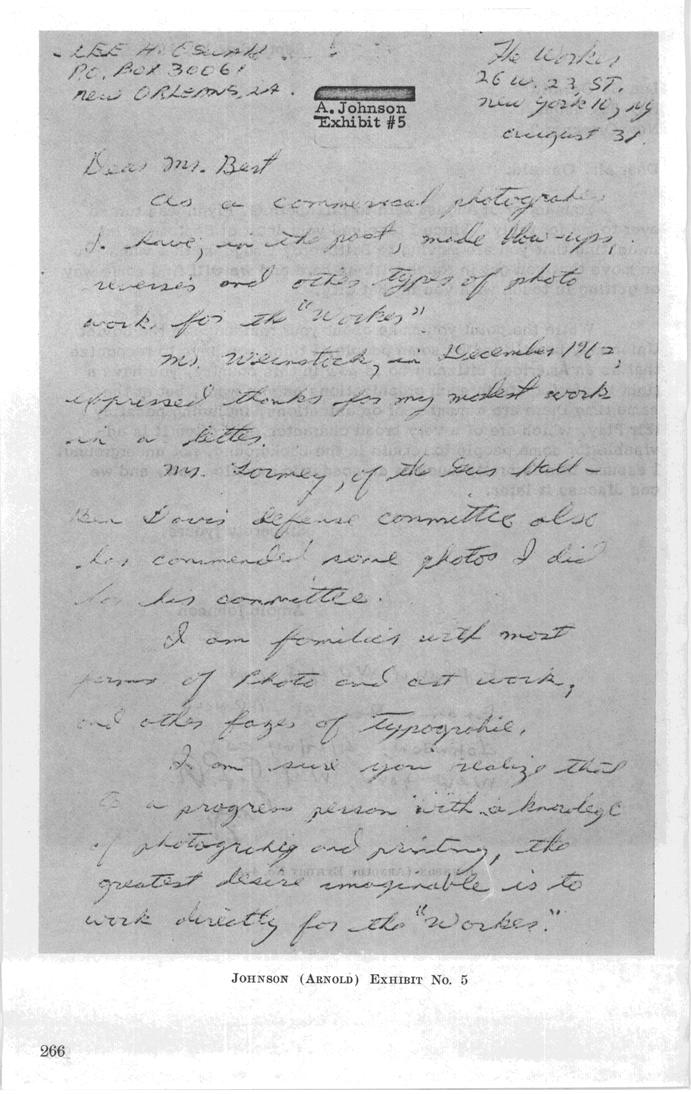 LEE H. OSWALD
P.O. BOX 30061
new ORLEANS, LA.
The Worker
26 W. 23, ST.
new york 10, ny
august 31.
A. Johnson
Exhibit #5
Dear Mr. Bert
As a commerical photographer
I have, in the past, made blow-ups,
reverses and other types of photo
work for the "Worker"
Mr. Weinstock, in December 1962
expressed thanks for my modest work
in a letter.
Mr. Tormey, of the Gus Hall-
Ben Davis defense committee also
has commended some photos I did
for his committee.
I am familier with most
forms of Photo and art work,
and other fazes of typograhie.
I am sure you realize that
to a progress person with a knowledge
of photograhy and printing, the
greatest desire imaginable is to
work directly for the "Worker."
JOHNSON (ARNOLD) EXHIBIT NO. 5
266